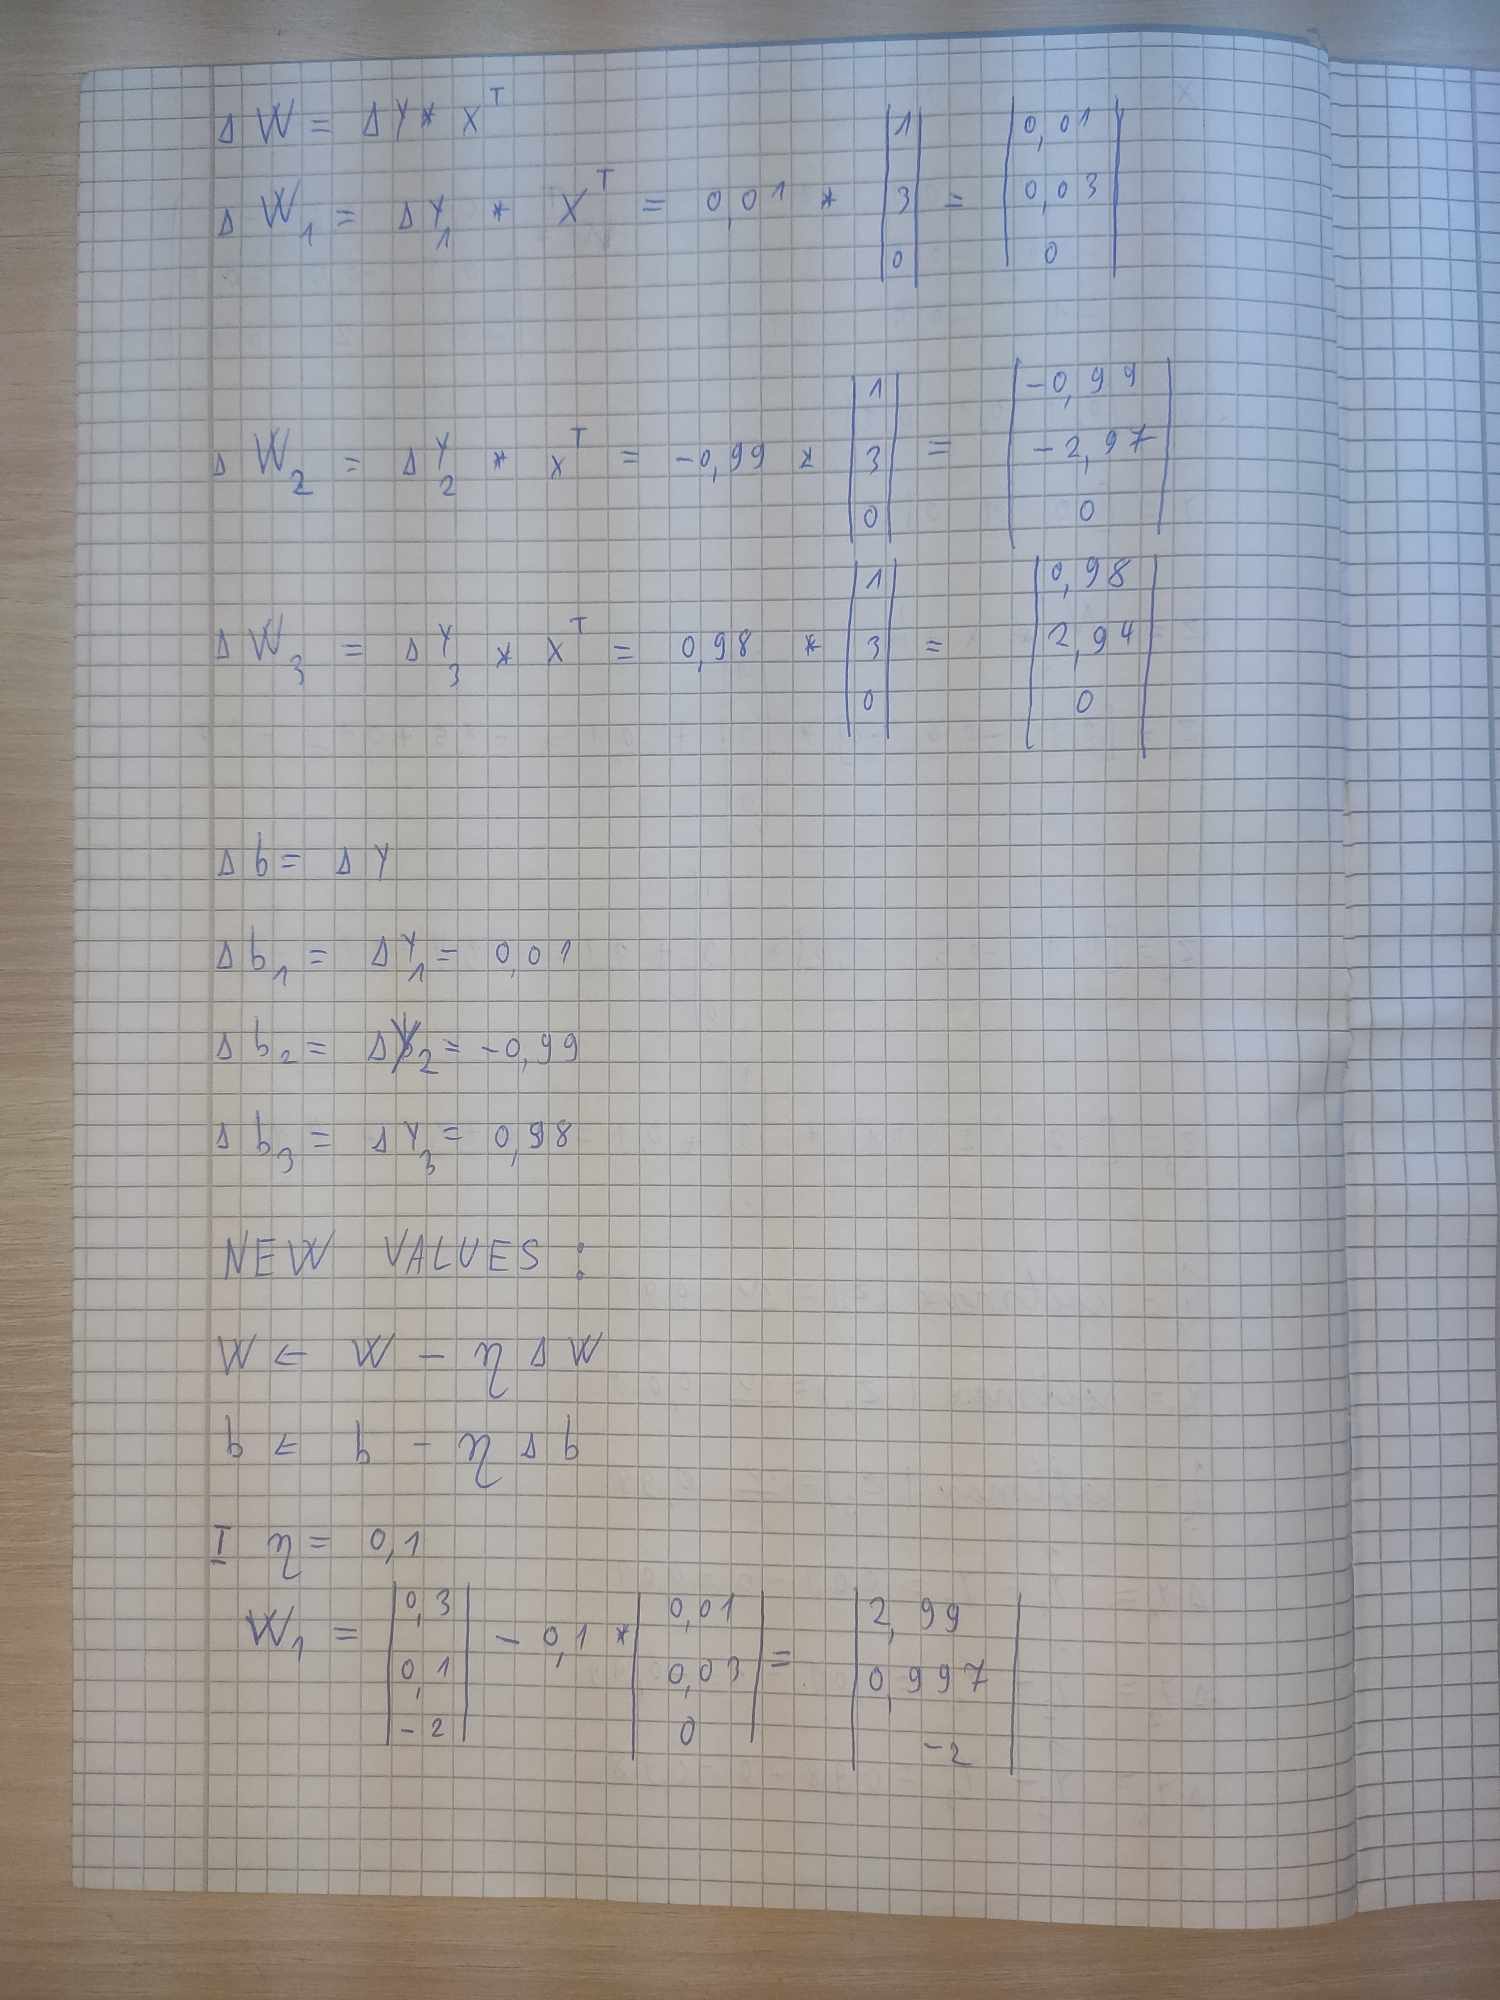 Δ W = Δ Y * X^T
Δ W_1 = Δ Y_1 * X^T = 0,01 * |1 3 0| = |0,01 0,03 0|
Δ W_2 = Δ Y_2 * X^T = -0,99 * |1 3 0| = |-0,99 -2,97 0|
Δ W_3 = Δ Y_3 * X^T = 0,98 * |1 3 0| = |0,98 2,94 0|
Δ b = Δ Y
Δ b_1 = Δ Y_1 = 0,01
Δ b_2 = Δ Y_2 = -0,99
Δ b_3 = Δ Y_3 = 0,98
NEW VALUES :
W ← W - η Δ W
b ← b - η Δ b
I η = 0,1
W_1 = |0,3 0,1 -2| - 0,1 * |0,01 0,03 0| = |2,99 0,997 -2|